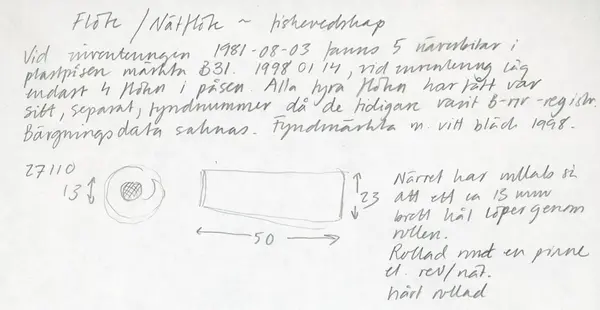 Flöte / Nätflöte ~ fiskeredskap
Vid inventeringen 1981-08-03 fanns 5 näverbitar i
plastpåsen märkta B31. 1998 01 14, vid inventering låg
endast 4 flöten i påsen. Alla fyra flöten har fått var
sitt, separat, fyndnummer då de tidigare varit B-nr-registr.
Bärgningsdata saknas. Fyndmärkta m. vitt bläck 1998.
27110
13
23
50
Nävret har rullats så
att ett ca 13 mm
brett hål löper genom
rullen.
Rullad runt en pinne
el. rev/nät.
hårt rullad